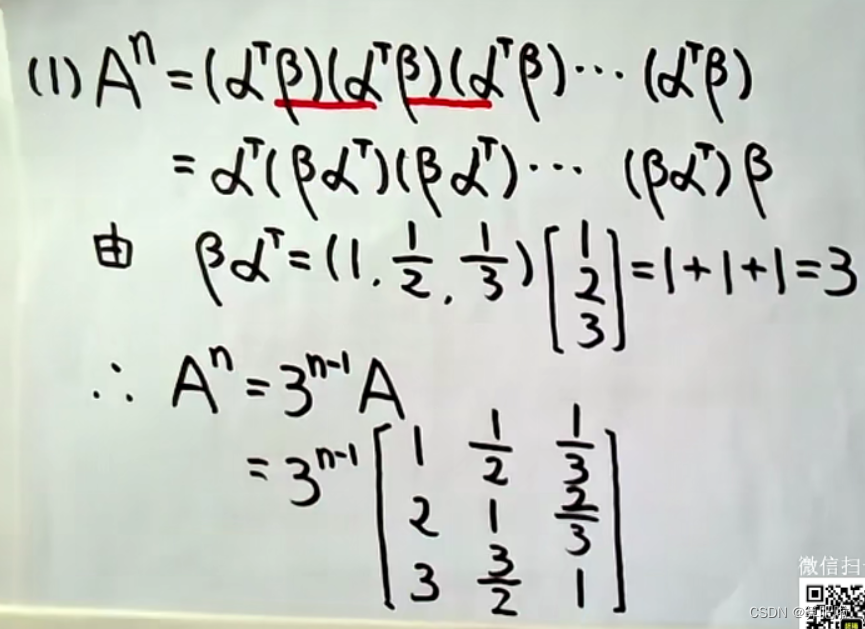 (1) Aⁿ = (αᵀβ)(αᵀβ)(αᵀβ)⋯(αᵀβ)
= αᵀ(βαᵀ)(βαᵀ)⋯ (βαᵀ)β
由 βαᵀ = (1, 1/2, 1/3) [1; 2; 3] = 1+1+1 = 3
∴ Aⁿ = 3ⁿ⁻¹A
= 3ⁿ⁻¹ [1 1/2 1/3; 2 1 2/3; 3 3/2 1]
微信扫
CSDN